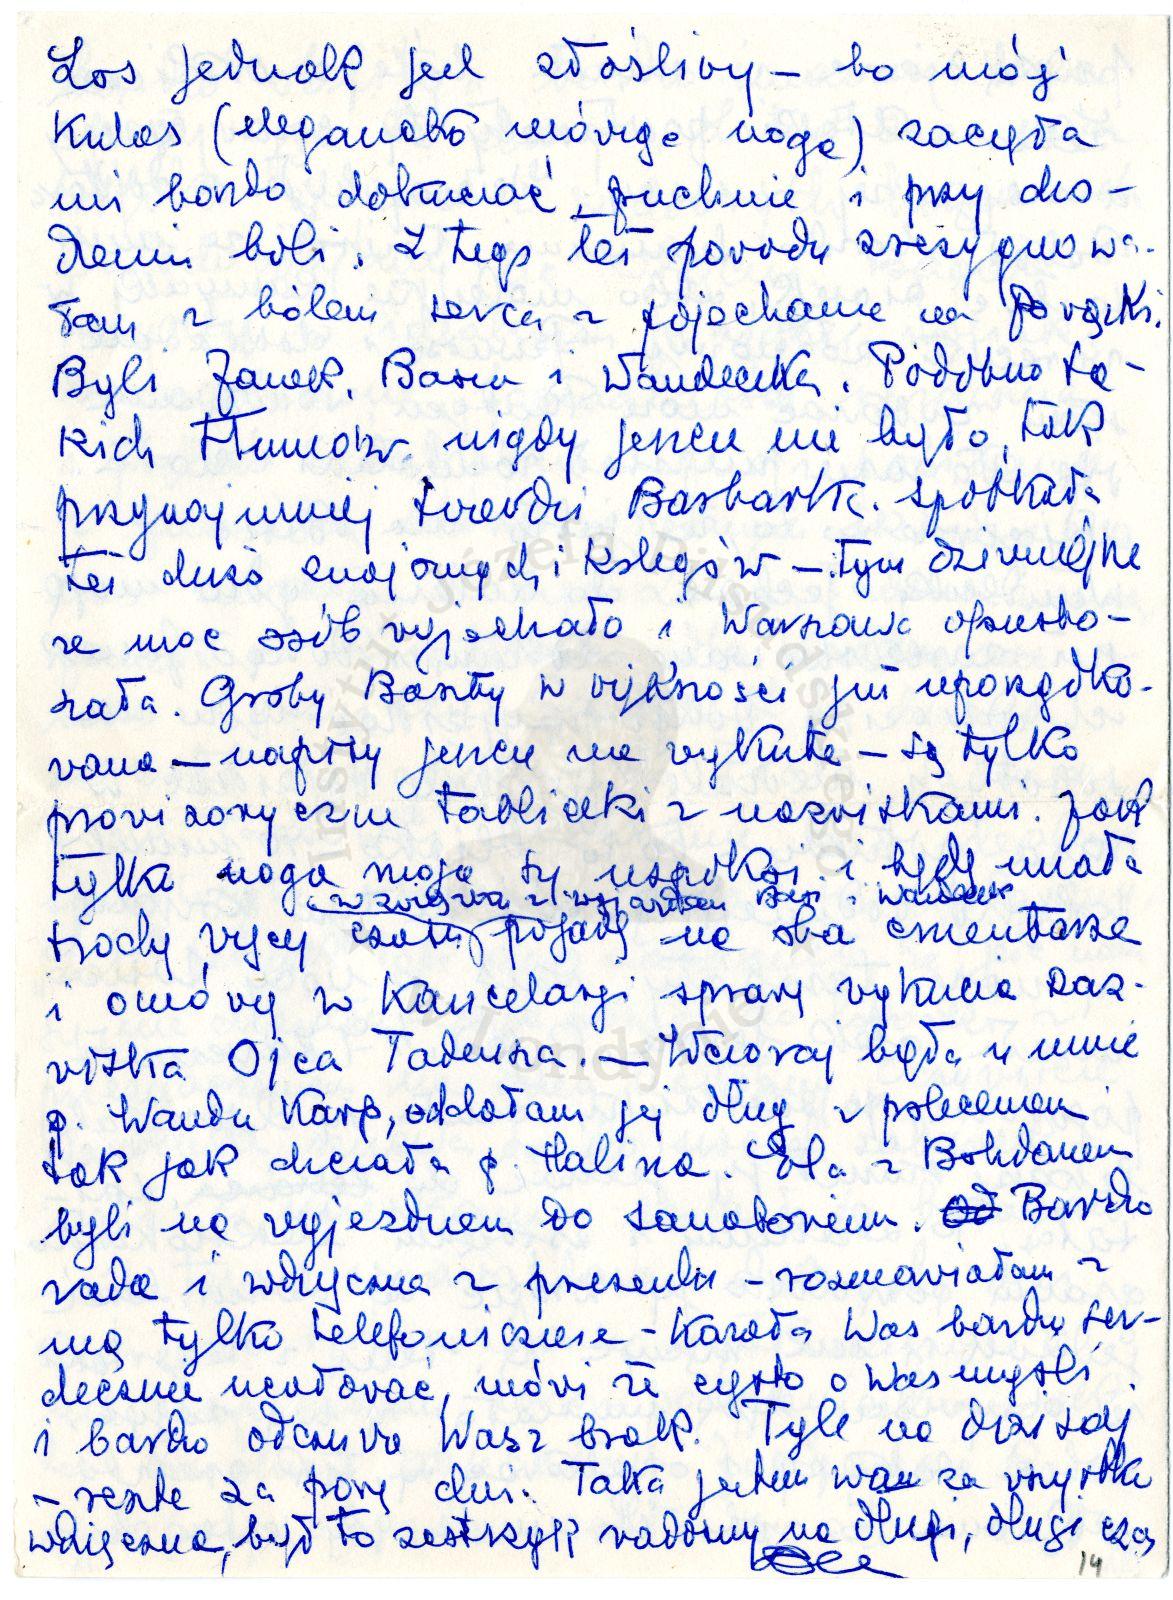 Los jednak jest złośliwy – bo mój
Kulas (elegancko mówiąc noga) zaczęła
mi bardzo dokuczać, puchnie i przy cho-
dzeniu boli. Z tego też powodu zrezygnowa-
łam z bólem serca z pojechania na Powązki.
Byli Janek, Basia i Wandeczka. Podobno ta-
kich tłumów nigdy jeszcze nie było, tak
przynajmniej twierdzi Barbarka. Spotkała
też dużo znajomych i kolegów – tym dziwniejsze
że moc osób wyjechało i Warszawa opusto-
szała. Groby Baszty w większości już uporządko-
wane – napisy jeszcze nie wykute – są tylko
prowizoryczne tabliczki z nazwiskami. Jak
tylko noga moja się uspokoi i będę miała
w związku z wyjazdem Basi i Wandeczki
trochę więcej czasu pojadę na oba cmentarze
i omówię w Kancelarji sprawę wykucia naz-
wiska Ojca Tadeusza. – Wczoraj była u mnie
p. Wanda Karp, oddałam jej dług z poleceniem
tak jak chciała p. Halina. Ela z Bohdanem
byli na wyjezdnem do sanatorium. Bardzo
rada i wdzięczna z prezentu – rozmawiałam z
nią tylko telefonicznie – Kazała Was bardzo ser-
decznie ucałować, mówi że często o Was myśli
i bardzo odczuwa Wasz brak. Tyle na dzisiaj
– reszta za parę dni. Taka jestem Wam za wszystko
wdzięczna, był to zastrzyk radosny na długi, długi czas
14
Instytut Józefa Piłsudskiego
w Londynie